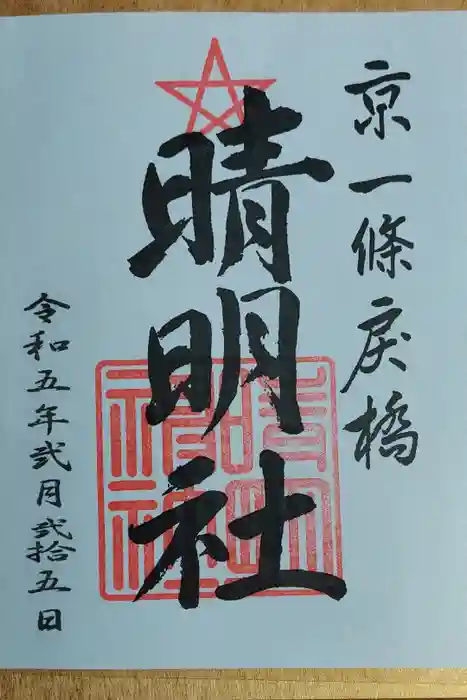 京一條戻橋
晴明社
晴明神社
令和五年弐月弐拾五日